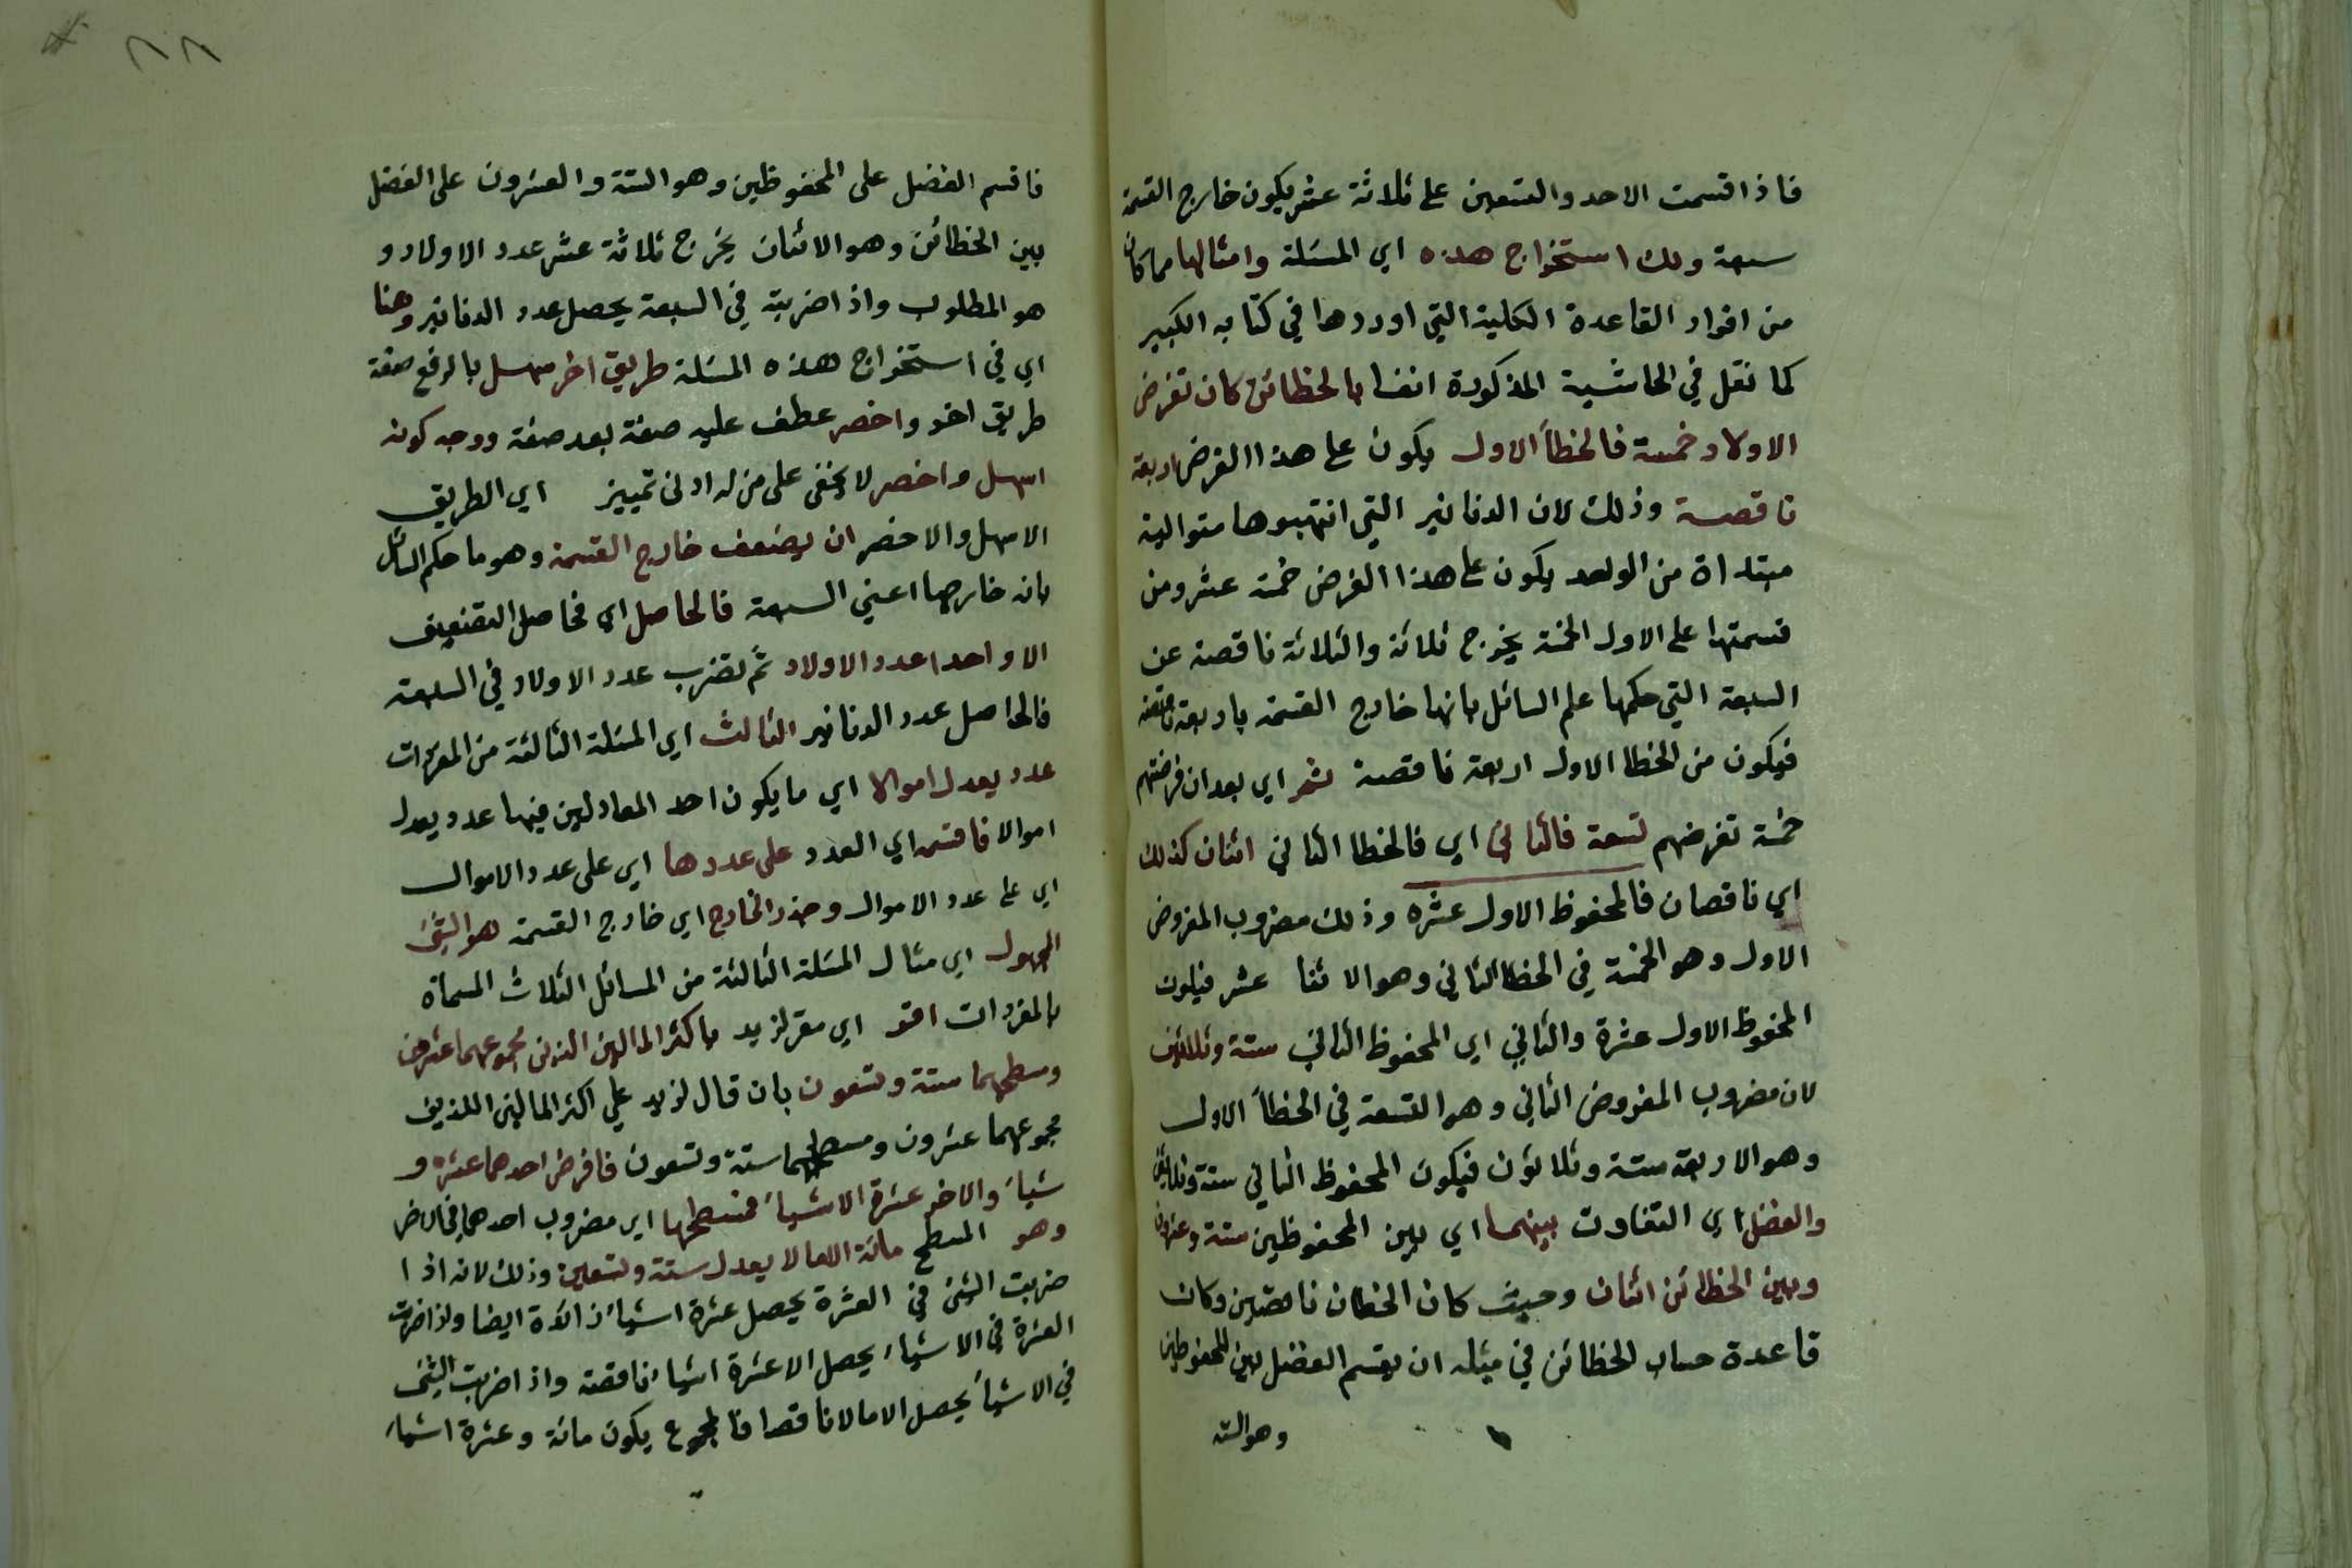 فاذا قسمت الاحد والتسعين على ثلاثة عشر يكون خارج القسمة
سبعة ولك استخراج هذه اي المسئلة وامثالها مما كان
من افراد القاعدة الكلية التي اوردها في كتابه الكبير
كما نقل في الحاشية المذكورة انفا بالخطائن كان تفرض
الاولاد خمسة فالخطأ الاول يكون على هذا الفرض اربعة
ناقصة وذلك لان الدنانير التي انتهبوها متوالية
مبتداة من الواحد يكون على هذا الفرض خمسة عشر ومن
قسمتها على الاول الخمسة يخرج ثلاثة والثلاثة ناقصة عن
السبعة التي حكمها علم السائل بانها خارج القسمة باربعة ناقصة
فيكون من الخطا الاول اربعة ناقصة ثم اي بعد ان فرضتهم
خمسة تفرضهم تسعة فالثاني اي فالخطا الثاني اثنان كذلك
اي ناقصان فالمحفوظ الاول عشره وذلك مضروب المفروض
الاول وهو الخمسة في الخطا الثاني وهو الاثنا عشر فيكون
المحفوظ الاول عشرة والثاني اي المحفوظ الثاني ستة وثلاثين
لان مضروب المفروض الثاني وهو التسعة في الخطأ الاول
وهو الاربعة ستة وثلاثون فيكون المحفوظ الثاني ستة وثلاثين
والفضل اي التفاوت بينهما اي بين المحفوظين ستة وعشرون
وبين الخطائن اثنان وحيث كان الخطان ناقصين وكان
قاعدة حساب الخطائن في مثله ان يقسم الفضل بين المحفوظين
وهو الستة
فاقسم الفضل على المحفوظين وهو الستة والعشرون على الفضل
بين الخطائن وهو الاثنان يخرج ثلاثة عشر عدد الاولاد و
هو المطلوب واذا ضربته في السبعة يحصل عدد الدنانير وهنا
اي في استخراج هذه المسئلة طريق اخر سهل بالرفع صفة
طريق اخر واخصر عطف عليه صفة بعد صفة ووجه كونه
اسهل واخصر لا يخفى على من له ادنى تمييز اي الطريق
الاسهل والاخصر ان يضعف خارج القسمة وهو ما حكم السائل
بانه خارجها اعني السبعة فالحاصل اي فحاصل التضعيف
الا واحدا عدد الاولاد ثم تضرب عدد الاولاد في السبعة
فالحاصل عدد الدنانير الثالث اي المسئلة الثالثة من المفردات
عدد يعدل اموالا اي ما يكون احد المعادلين فيها عدد يعدل
اموالا فاقسم اي العدد على عددها اي على عدد الاموال
اي على عدد الاموال وجذر الخارج اي خارج القسمة هو الشئ
المجهول اي مثال المسئلة الثالثة من المسائل الثلاث المسماة
بالمفردات اقر اي مقر لزيد باكثر المالين الذين مجموعهما عشرون
ومسطحهما ستة وتسعون بان قال لزيد علي اكثر المالين اللذين
مجموعهما عشرون ومسطحهما ستة وتسعون فافرض احدهما عشره و
شيأ والاخر عشرة الا شيأ فمسطحها اي مضروب احدهما في الاخر
وهو المسطح مائة الا مالا يعدل ستة وتسعين وذلك لانه اذا
ضربت الشئ في العشرة يحصل عشرة اشيأ زائدة ايضا واذا ضربت
العشرة في الا شيأ يحصل الا عشرة اشيأ ناقصة واذا ضربت الشئ
في الا شيأ يحصل الا مالا ناقصا فالمجموع يكون مائة وعشرة اشيأ